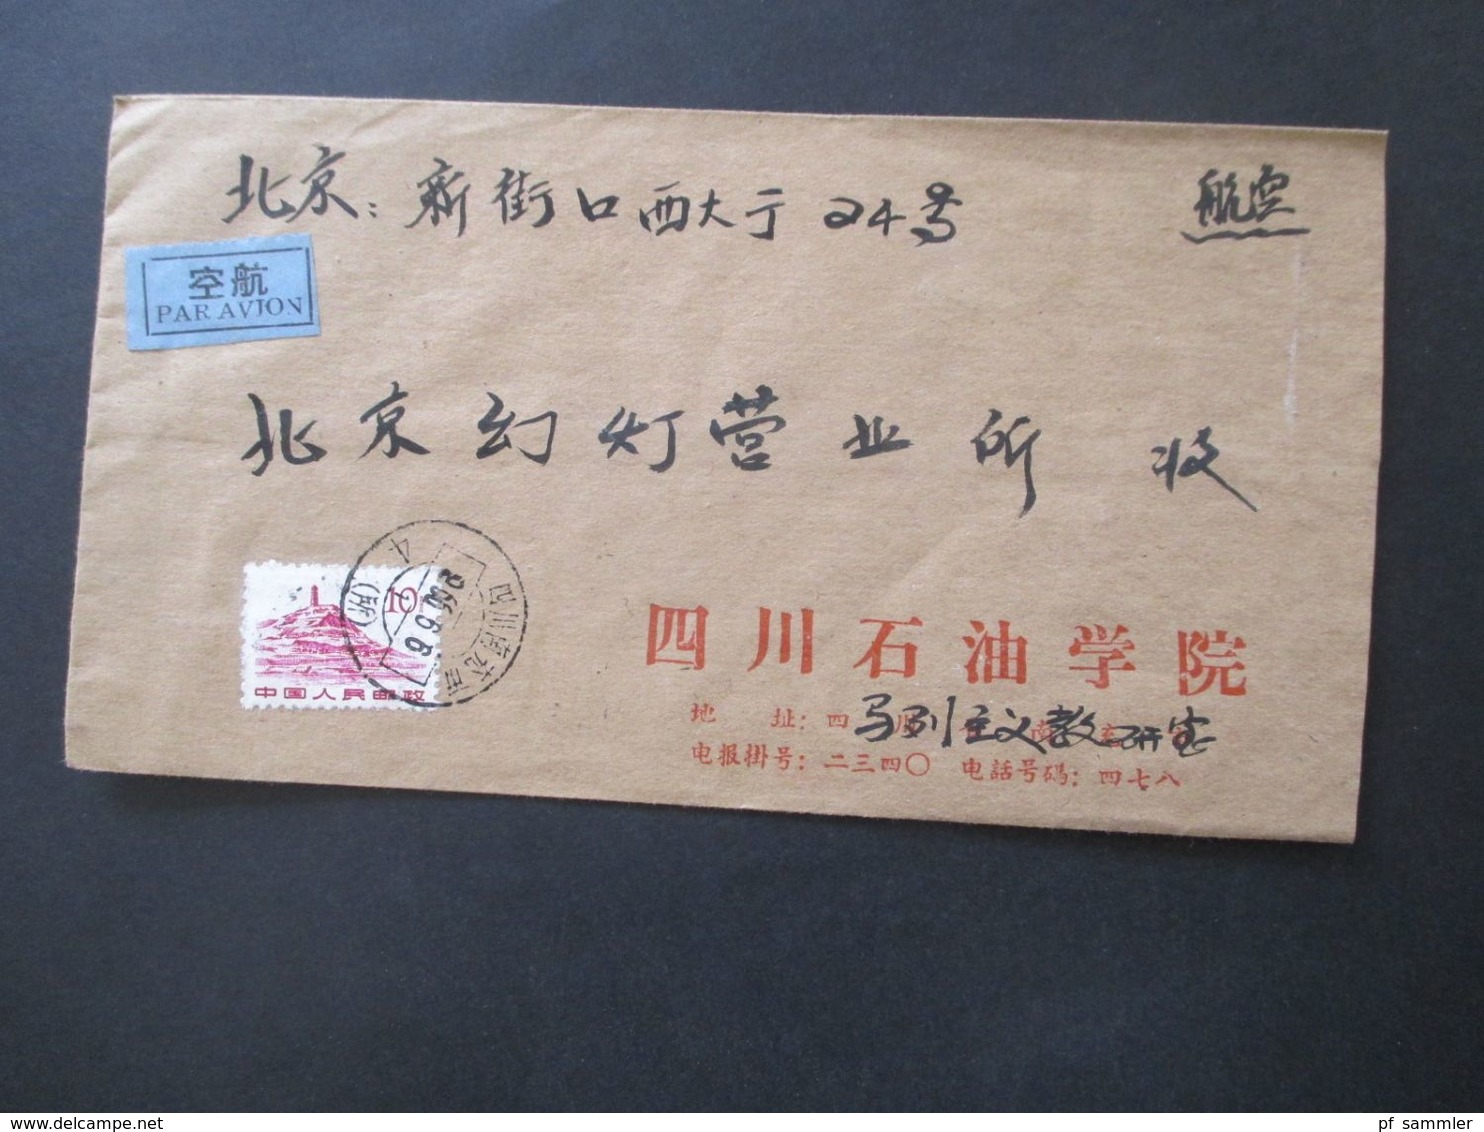 北京：新街口西大亍24号
航空
空航
PAR AVION
北京幻灯营业所 收
10
中国人民邮政
四川石油学院
地 址：四
马列主义教研室
电报掛号：二三四〇 电話号碼：四七八
pf_sammler